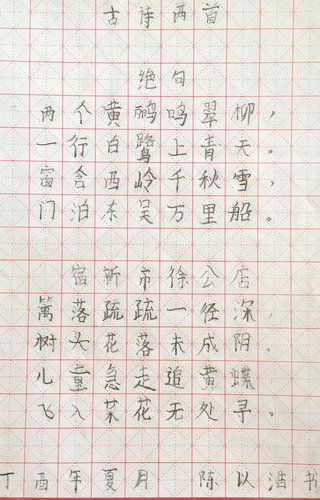 古诗两首
绝句
两个黄鹂鸣翠柳，
一行白鹭上青天。
窗含西岭千秋雪，
门泊东吴万里船。
宿新市徐公店
篱落疏疏一径深，
树头花落未成阴。
儿童急走追黄蝶
飞入菜花无处寻。
丁酉年夏月 陈以浩书